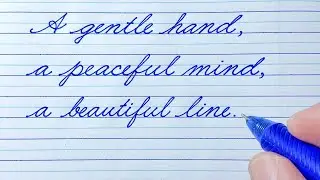 A gentle hand,
a peaceful mind,
a beautiful line.